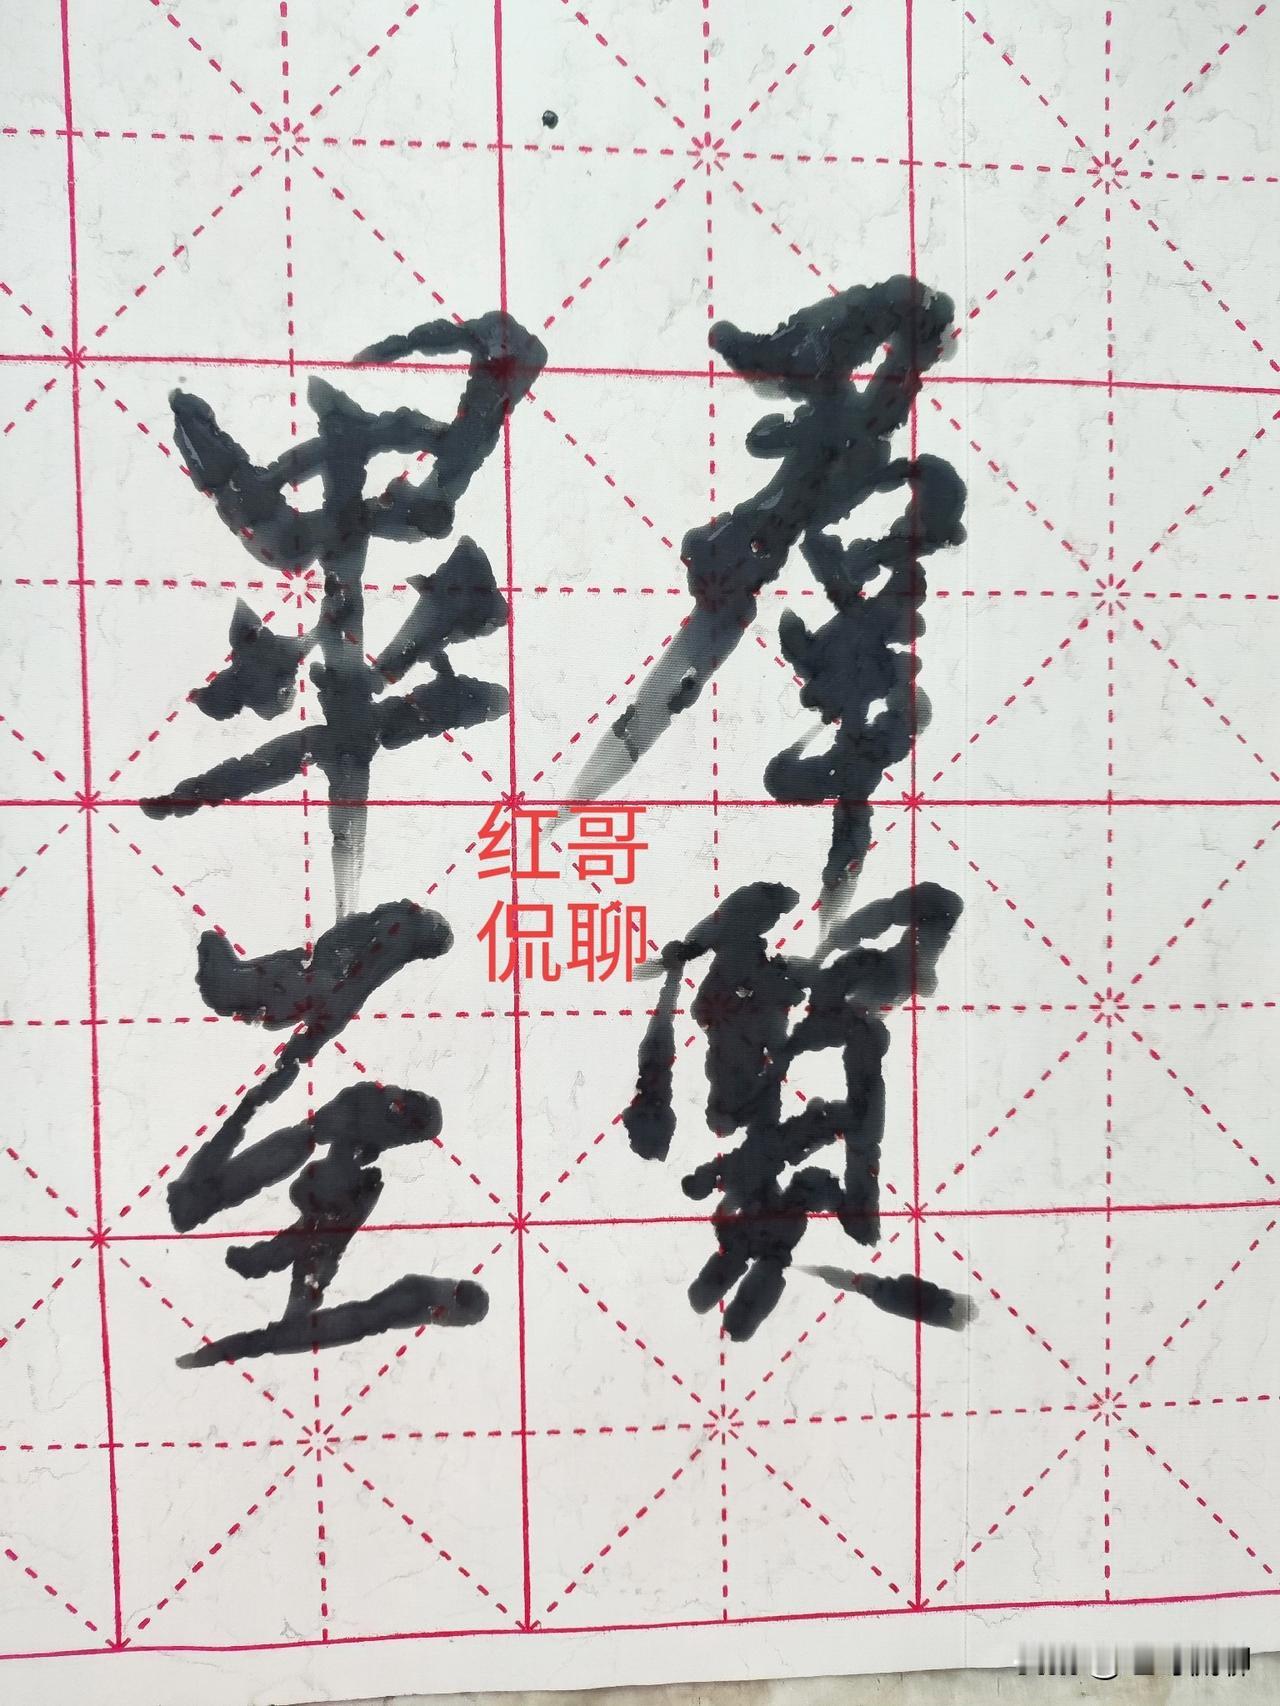 羣賢
畢至
红哥
侃聊